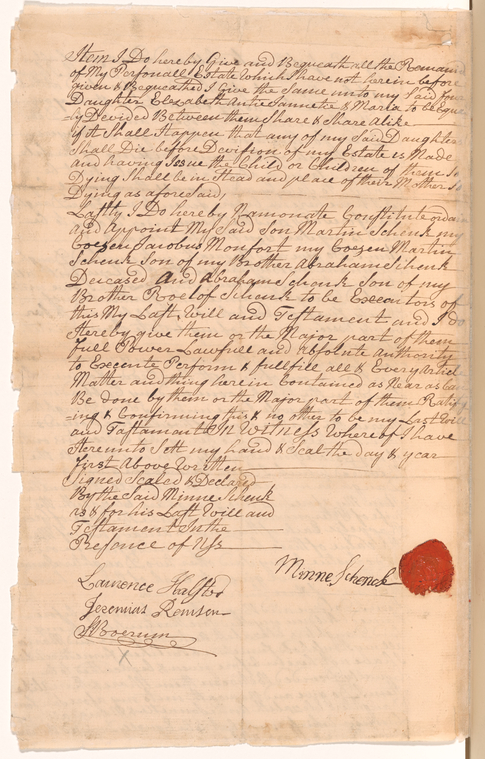 Item I Do hereby Give and Bequeath all the Remain
of My Personall Estate which I have not herein before
given & Bequeathed I Give the same unto my Said four
Daughter Elezabeth Antie Jannetie & Maria to be Eque
-ly Devided Between them Share & Share alike
if it Shall Happen that any of my Said Daughter
Shall Die before Devision of my Estate is Made
and having Issue the Child or Children of them So
Dying Shall be in Stead and place of their Mother So
Dying as afore Said,
Lastly I Do hereby Nomonate Constitute
and Appoint My Said Son Martin Schenk my
Cozen Jacobus Monfort my Cozen Martin
Schenk Son of my Brother Abraham Schenk
Deceased and Abraham Schenk Son of my
Brother Roelof Schenk to be Executors of
this My Last Will and Testament and I do
Hereby give them or the Major part of them
full Power Lawfull and Absolute Authority
to Execute Perform & fullfill all & Every Articl
Matter and thing herein Contained as Near as Ca
Be done by them or the Major part of them Ratify
-ing & Confirming this & no other to be my Last Will
and Tastament In Witness Whereof I have
Hereunto Sett my hand & Seal the day & year
first Above Written
Signed Sealed & Declard
By the Said Minne Schenk
as & for his Last Will and
Testament In the
Presence of Uss
Minne Schenck
Laurence Halsted
Jeremias Remsen
Boerum
X